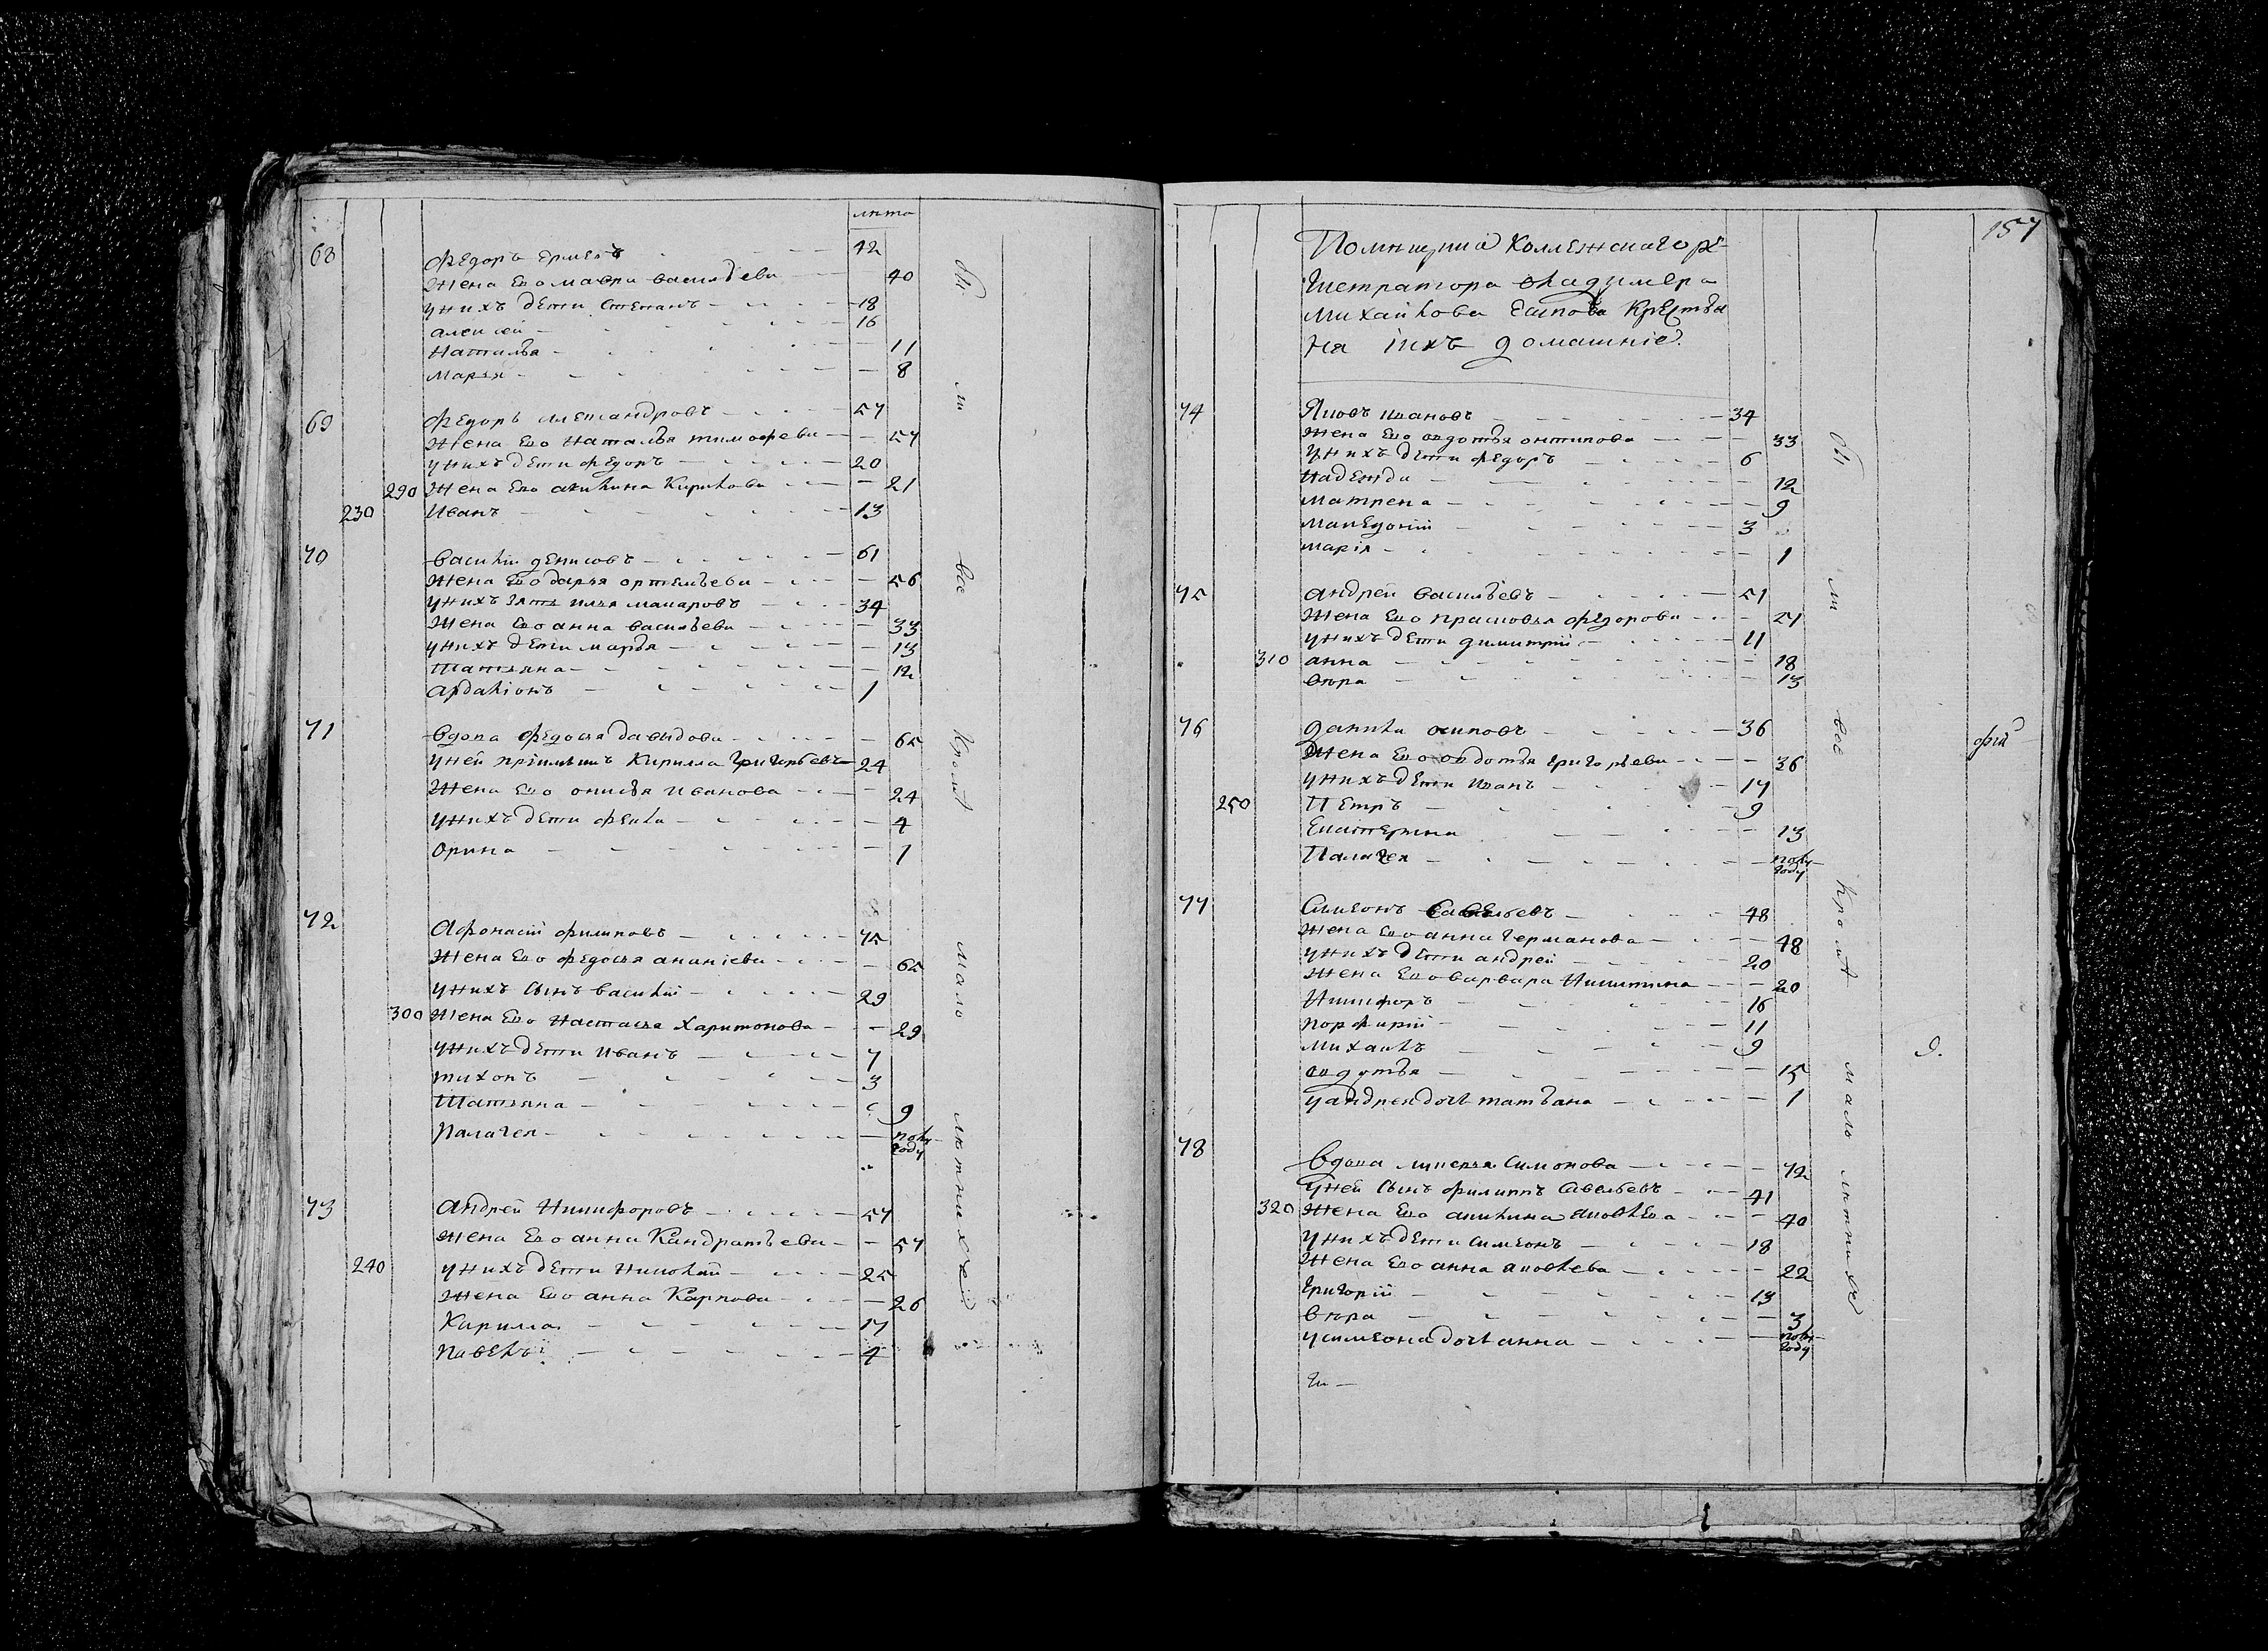 лѣта
68 Федоръ Ермевъ 42
Жена Его мавра васильева 40
у нихъ дети Степанъ 18
алексей 16
Наталья 11
Марья 8
69 Федоръ александровъ 57
Жена Его Наталья тимофеева 57
у нихъ дети Федоръ 20
290 Жена Его акилина Кирилова 21
230 Иванъ 13
70 Василій денисовъ 61
Жена Его дарья ортемьева 56
у нихъ зять илья макаровъ 34
Жена Его анна васильева 33
у нихъ дети марья 13
Татьяна 12
Ардаліонъ 1
71 Вдова Федосья давыдова 65
у ней пріимышъ Кирилла Григорьевъ 24
Жена Его онисья Иванова 24
у нихъ дети фекла 4
Орина 1
72 Афонасій филиповъ 75
Жена Его федосья ананіева 65
у нихъ сынъ василій 29
300 Жена Его Настасья Харитонова 29
у нихъ дети Иванъ 7
тихонъ 3
Татьяна 9
Палагея полу году
73 Андрей Никифоровъ 57
Жена Его анна Кандратьева 57
240 у нихъ дети Николай 25
Жена Его анна Карпова 26
Кирилла 17
Павелъ 4
бы ли все Кромѣ мало летнихъ
157
Помещика Коллежскаго ре
гистратора владимера
Михайлова Есипова Крестья
не ихъ домашніе
74 Яковъ ивановъ 34
Жена Его овдотья онтипова 33
у нихъ дети федоръ 6
Надежда 12
Матрена 9
Македоній 3
Марія 1
75 Андрей Васильевъ 51
Жена Его прасковья федорова 51
у нихъ дети димитрій 11
310 анна 18
вера 13
76 данила осиповъ 36
Жена Его овдотья григорьева 36
у нихъ дети Иванъ 17
250 Петръ 9
Екатерина 13
Палагея полу году
77 Симеонъ Савельевъ 48
Жена Его анна Германова 48
у нихъ дети андрей 20
Жена Его варвара Никитина 20
Никифоръ 16
порфирій 11
михаилъ 9
овдотья 15
у андрея дочь татьяна 1
78 Вдова Симонова 72
у ней сынъ филиппъ Савельевъ 41
320 Жена Его акилина яковлева 40
у нихъ дети симеонъ 18
Жена Его анна яковлева 22
Григорій 13
вера 3
у симеона дочь анна полу году
бы ли все Кромѣ мало летнихъ